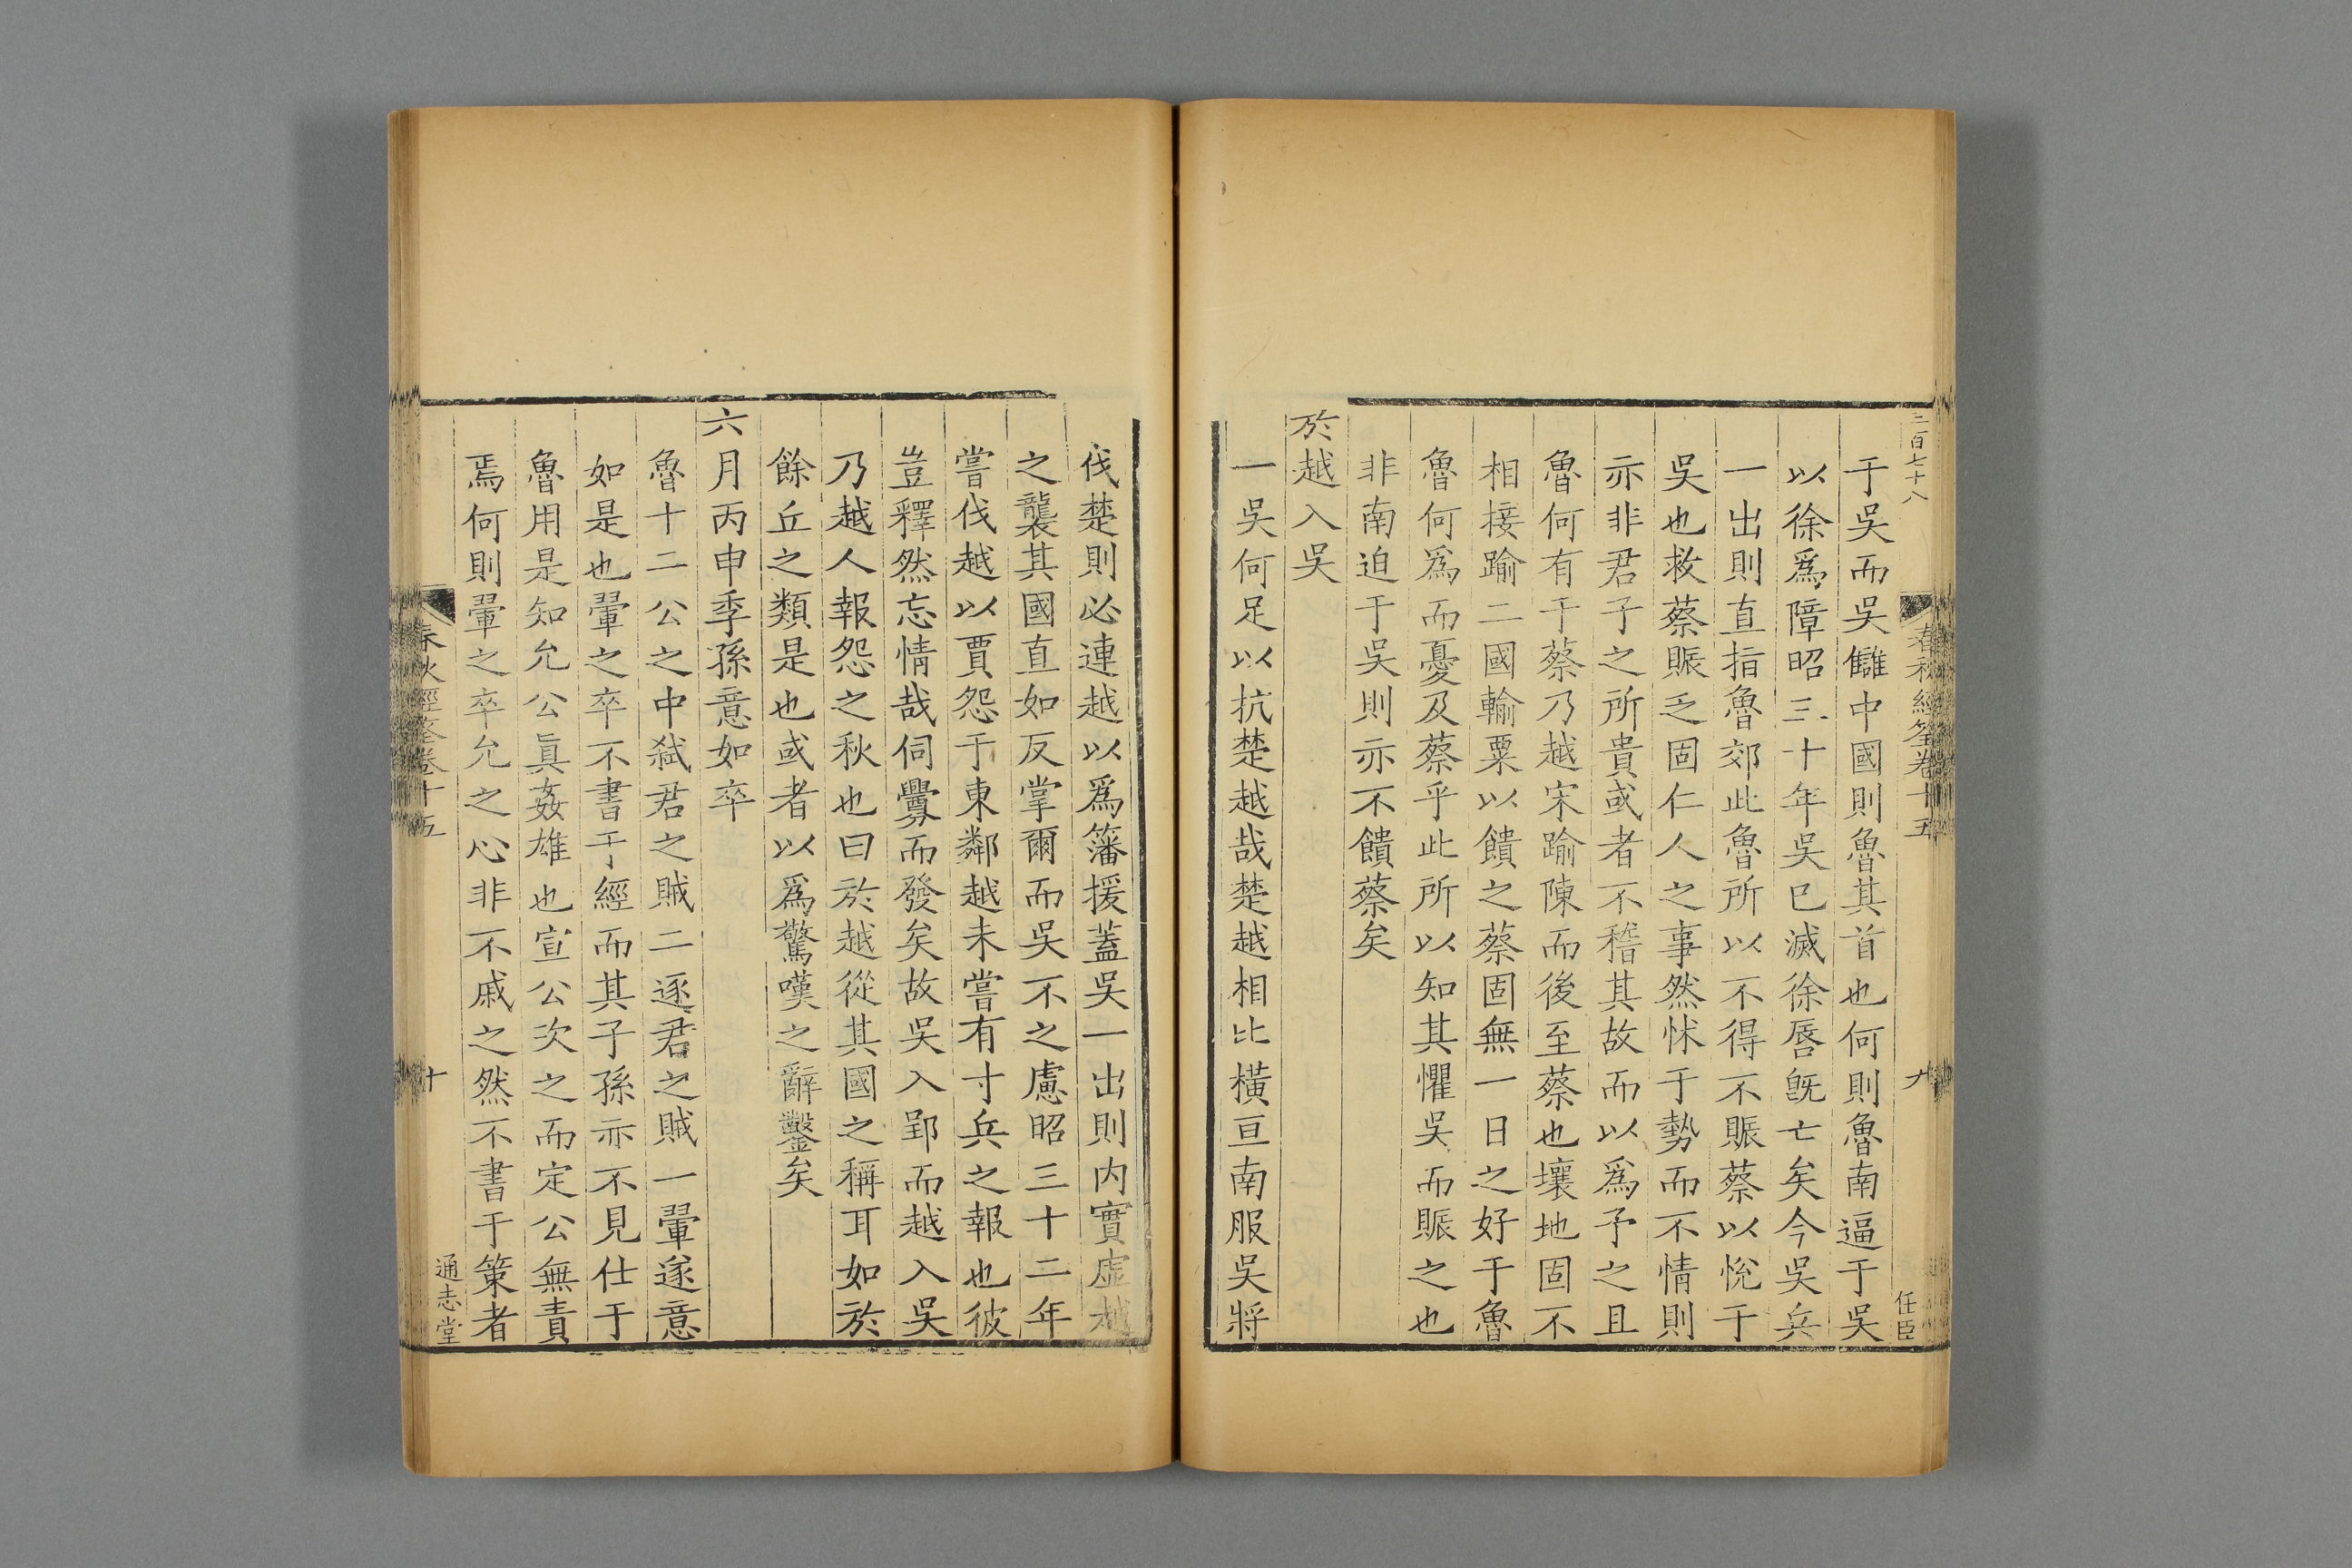 二百七十八
春秋經筌卷十五
九
任臣
于吳而吳讎中國則魯其首也何則魯南逼于吳
以徐爲障昭三十年吳巳滅徐唇旣亡矣今吳兵
一出則直指魯郊此魯所以不得不賑蔡以悅于
吳也救蔡賑乏固仁人之事然怵于勢而不情則
亦非君子之所貴或者不稽其故而以爲予之且
魯何有于蔡乃越宋踰陳而後至蔡也壤地固不
相接踰二國輸粟以饋之蔡固無一日之好于魯
魯何爲而憂及蔡乎此所以知其懼吳而賑之也
非南迫于吳則亦不饋蔡矣
於越入吳
一吳何足以抗楚越哉楚越相比橫亘南服吳將
伐楚則必連越以爲籓援蓋吳一出則内實虛越
之襲其國直如反掌爾而吳不之慮昭三十二年
嘗伐越以賈怨于東鄰越未嘗有寸兵之報也彼
豈釋然忘情哉伺釁而發矣故吳入郢而越入吳
乃越人報怨之秋也曰於越從其國之稱耳如於
餘丘之類是也或者以爲驚嘆之辭鑿矣
六月丙申季孫意如卒
魯十二公之中弑君之賊二逐君之賊一翬遂意
如是也翬之卒不書于經而其子孫亦不見仕于
魯用是知允公眞姦雄也宣公次之而定公無責
焉何則翬之卒允之心非不戚之然不書于策者
春秋經筌卷十五
十
通志堂